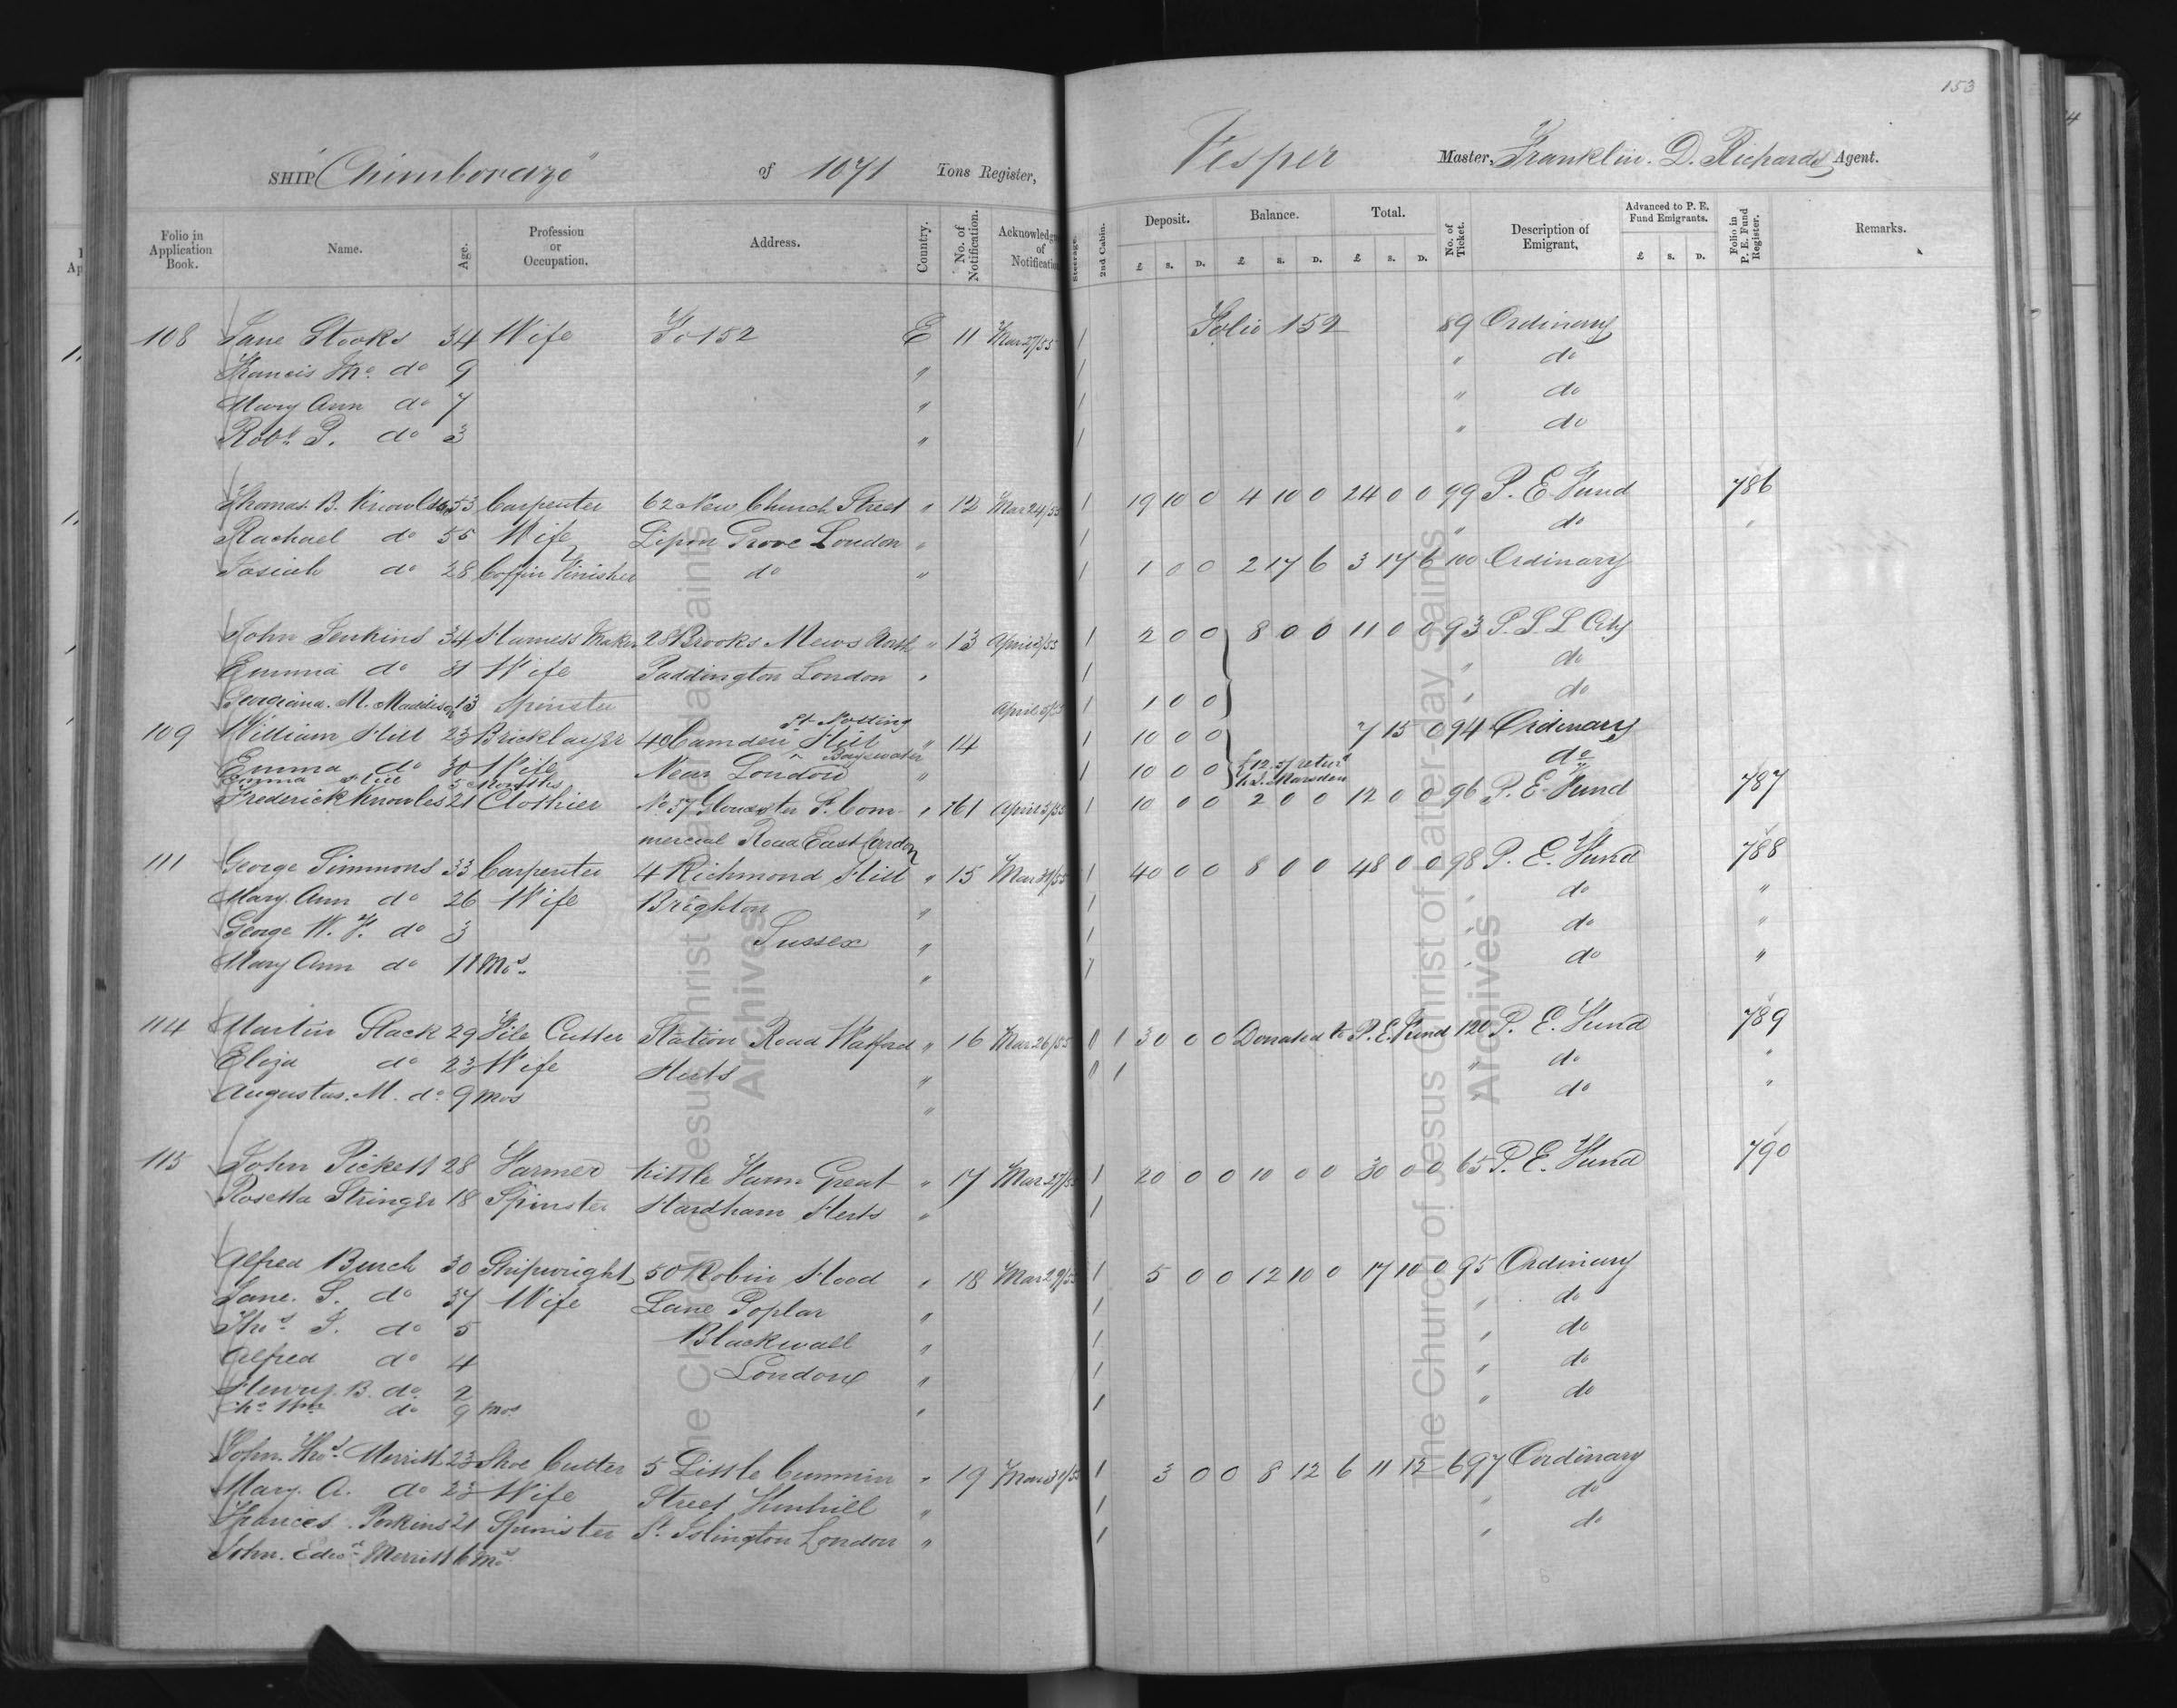 153
SHIP "Chimborazo" of 1071 Tons Register, Vesper Master, Franklin. D. Richards Agent.
Folio in Application Book. Name. Age. Profession or Occupation. Address. Country. No. of Notification. Acknowledg of Notification Steerage. 2nd Cabin. Deposit. Balance. Total. No. of Ticket. Description of Emigrant, Advanced to P. E. Fund Emigrants. Folio in P. E. Fund Register. Remarks.
£ S. D. £ S. D. £ S. D. £ S. D.
108 Jane Stooks 34 Wife Fo 152 E 11 Mar 27/55 1 Folio 152 89 Ordinary
Francis Mc. do 9 " 1 " do
Mary Ann do 7 " 1 " do
Robt. P. do 3 " 1 " do
Thomas B. Knowles 53 Carpenter 62 New Church Street " 12 Mar 24/55 1 19 10 0 4 10 0 24 0 0 99 P. E. Fund 786
Rachael do 55 Wife Lison Grove London " 1 " do "
Josiah do 28 Coffin Finisher do " 1 1 0 0 2 17 6 3 17 6 100 Ordinary
John Jenkins 34 Harness Maker 28 Brooks Mews North " 13 April 3/55 1 2 0 0 8 0 0 11 0 0 93 P. S. L City
Emma do 31 Wife Paddington London " 1 " do
Georgiana. M. Maddison 13 Spinster April 3/55 1 1 0 0 " do
109 William Hill 23 Bricklayer 40 Camden St Notting Hill " 14 1 10 0 0 7 15 0 94 Ordinary
Emma do 30 Wife Near London Bayswater " 1 10 0 0 £12.5/ return do
Emma Hill 5 Months h.J. Marsden "
Frederick Knowles 21 Clothier No. 57 Gloucester St. Com- " 161 April 3/55 1 10 0 0 2 0 0 12 0 0 96 P. E. Fund 787
mercial Road East London
111 George Simmons 33 Carpenter 4 Richmond Hill " 15 Mar 31/55 1 40 0 0 8 0 0 48 0 0 98 P. E. Fund 788
Mary Ann do 26 Wife Brighton " 1 " do "
George W. F. do 3 Sussex " 1 " do "
Mary Ann do 11 Mos. " 1 " do "
114 Martin Slack 29 File Cutter Station Road Watford " 16 Mar 26/55 0 1 30 0 0 Donated to P. E. Fund 120 P. E. Fund 789
Eliza do 23 Wife Herts " 0 1 " do "
Augustus. M. do 9 mos " do "
115 John Pickett 28 Farmer Little Farm Great " 17 Mar 27/55 1 20 0 0 10 0 0 30 0 0 65 P. E. Fund 790
Rosetta Stringer 18 Spinster Hardham Herts " 1
Alfred Burch 30 Shipwright 50 Robin Hood " 18 Mar 29/55 1 5 0 0 12 10 0 17 10 0 95 Ordinary
Jane. S. do 37 Wife Lane Poplar " 1 " do
Thos. J. do 5 Blackwall " 1 " do
Alfred do 4 London " 1 " do
Henry. B. do 2 " 1 " do
do 9 mos
John. Thos. Merritt 23 Shoe Cutter 5 Little Cummin " 19 Mar 30/55 1 3 0 0 8 12 6 11 12 6 97 Ordinary
Mary. A. do 23 Wife Street " 1 " do
Frances. Perkins 21 Spinister St. Islington London " 1 " do
John. Edwd. Merritt 6 Mos.
The Church of Jesus Christ of Latter-day Saints
Archives
The Church of Jesus Christ of Latter-day Saints
Archives